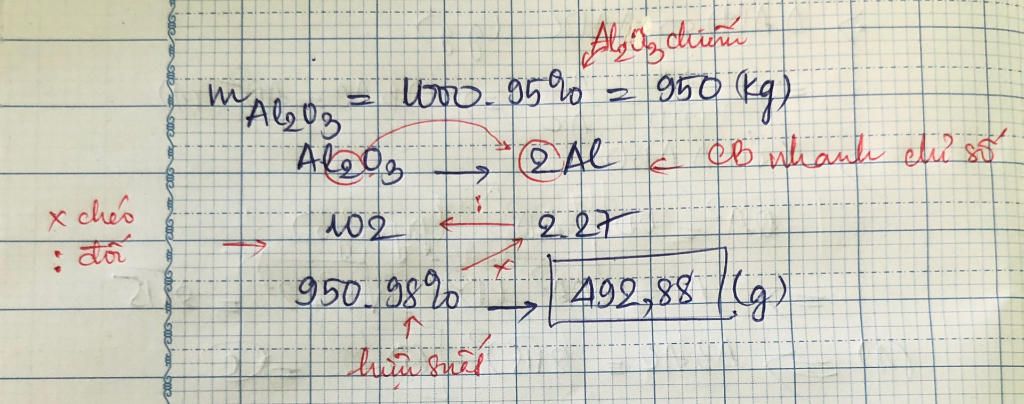 Al₂O₃ chiếm
mAl₂O₃ = 1000. 95% = 950 (kg)
Al₂O₃ → 2Al ← CB nhanh chỉ số
x chéo
: đối
→ 102 ← : 2.27
950. 98% x → 492,88 (g)
↑
hiệu suất